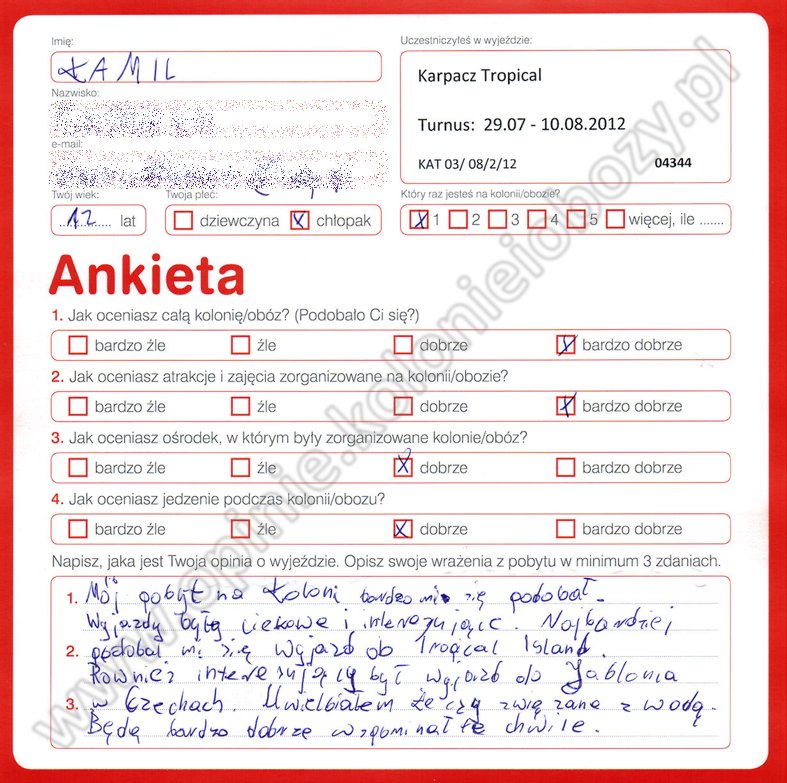 Imię:
KAMIL
Uczestniczyłeś w wyjeździe:
Karpacz Tropical
Turnus: 29.07 - 10.08.2012
KAT 03/ 08/2/12 04344
Nazwisko:
e-mail:
Twój wiek:
12 lat
Twoja płeć:
dziewczyna X chłopak
Który raz jesteś na kolonii/obozie?
X 1 2 3 4 5 więcej, ile .......
Ankieta
1. Jak oceniasz całą kolonię/obóz? (Podobało Ci się?)
bardzo źle źle dobrze X bardzo dobrze
2. Jak oceniasz atrakcje i zajęcia zorganizowane na kolonii/obozie?
bardzo źle źle dobrze X bardzo dobrze
3. Jak oceniasz ośrodek, w którym były zorganizowane kolonie/obóz?
bardzo źle źle X dobrze bardzo dobrze
4. Jak oceniasz jedzenie podczas kolonii/obozu?
bardzo źle źle X dobrze bardzo dobrze
Napisz, jaka jest Twoja opinia o wyjeździe. Opisz swoje wrażenia z pobytu w minimum 3 zdaniach.
1. Mój pobyt na koloni bardzo mi się podobał.
Wyjazdy były ciekawe i interesujące. Najbardziej
2. podobał mi się wyjazd do Tropical Island.
Również interesujący był wyjazd do Jablonia
3. w Czechach. Uwielbiałem rzeczy związane z wodą.
Będę bardzo dobrze wspominał te chwile.
www.opinie.kolonieiobozy.pl